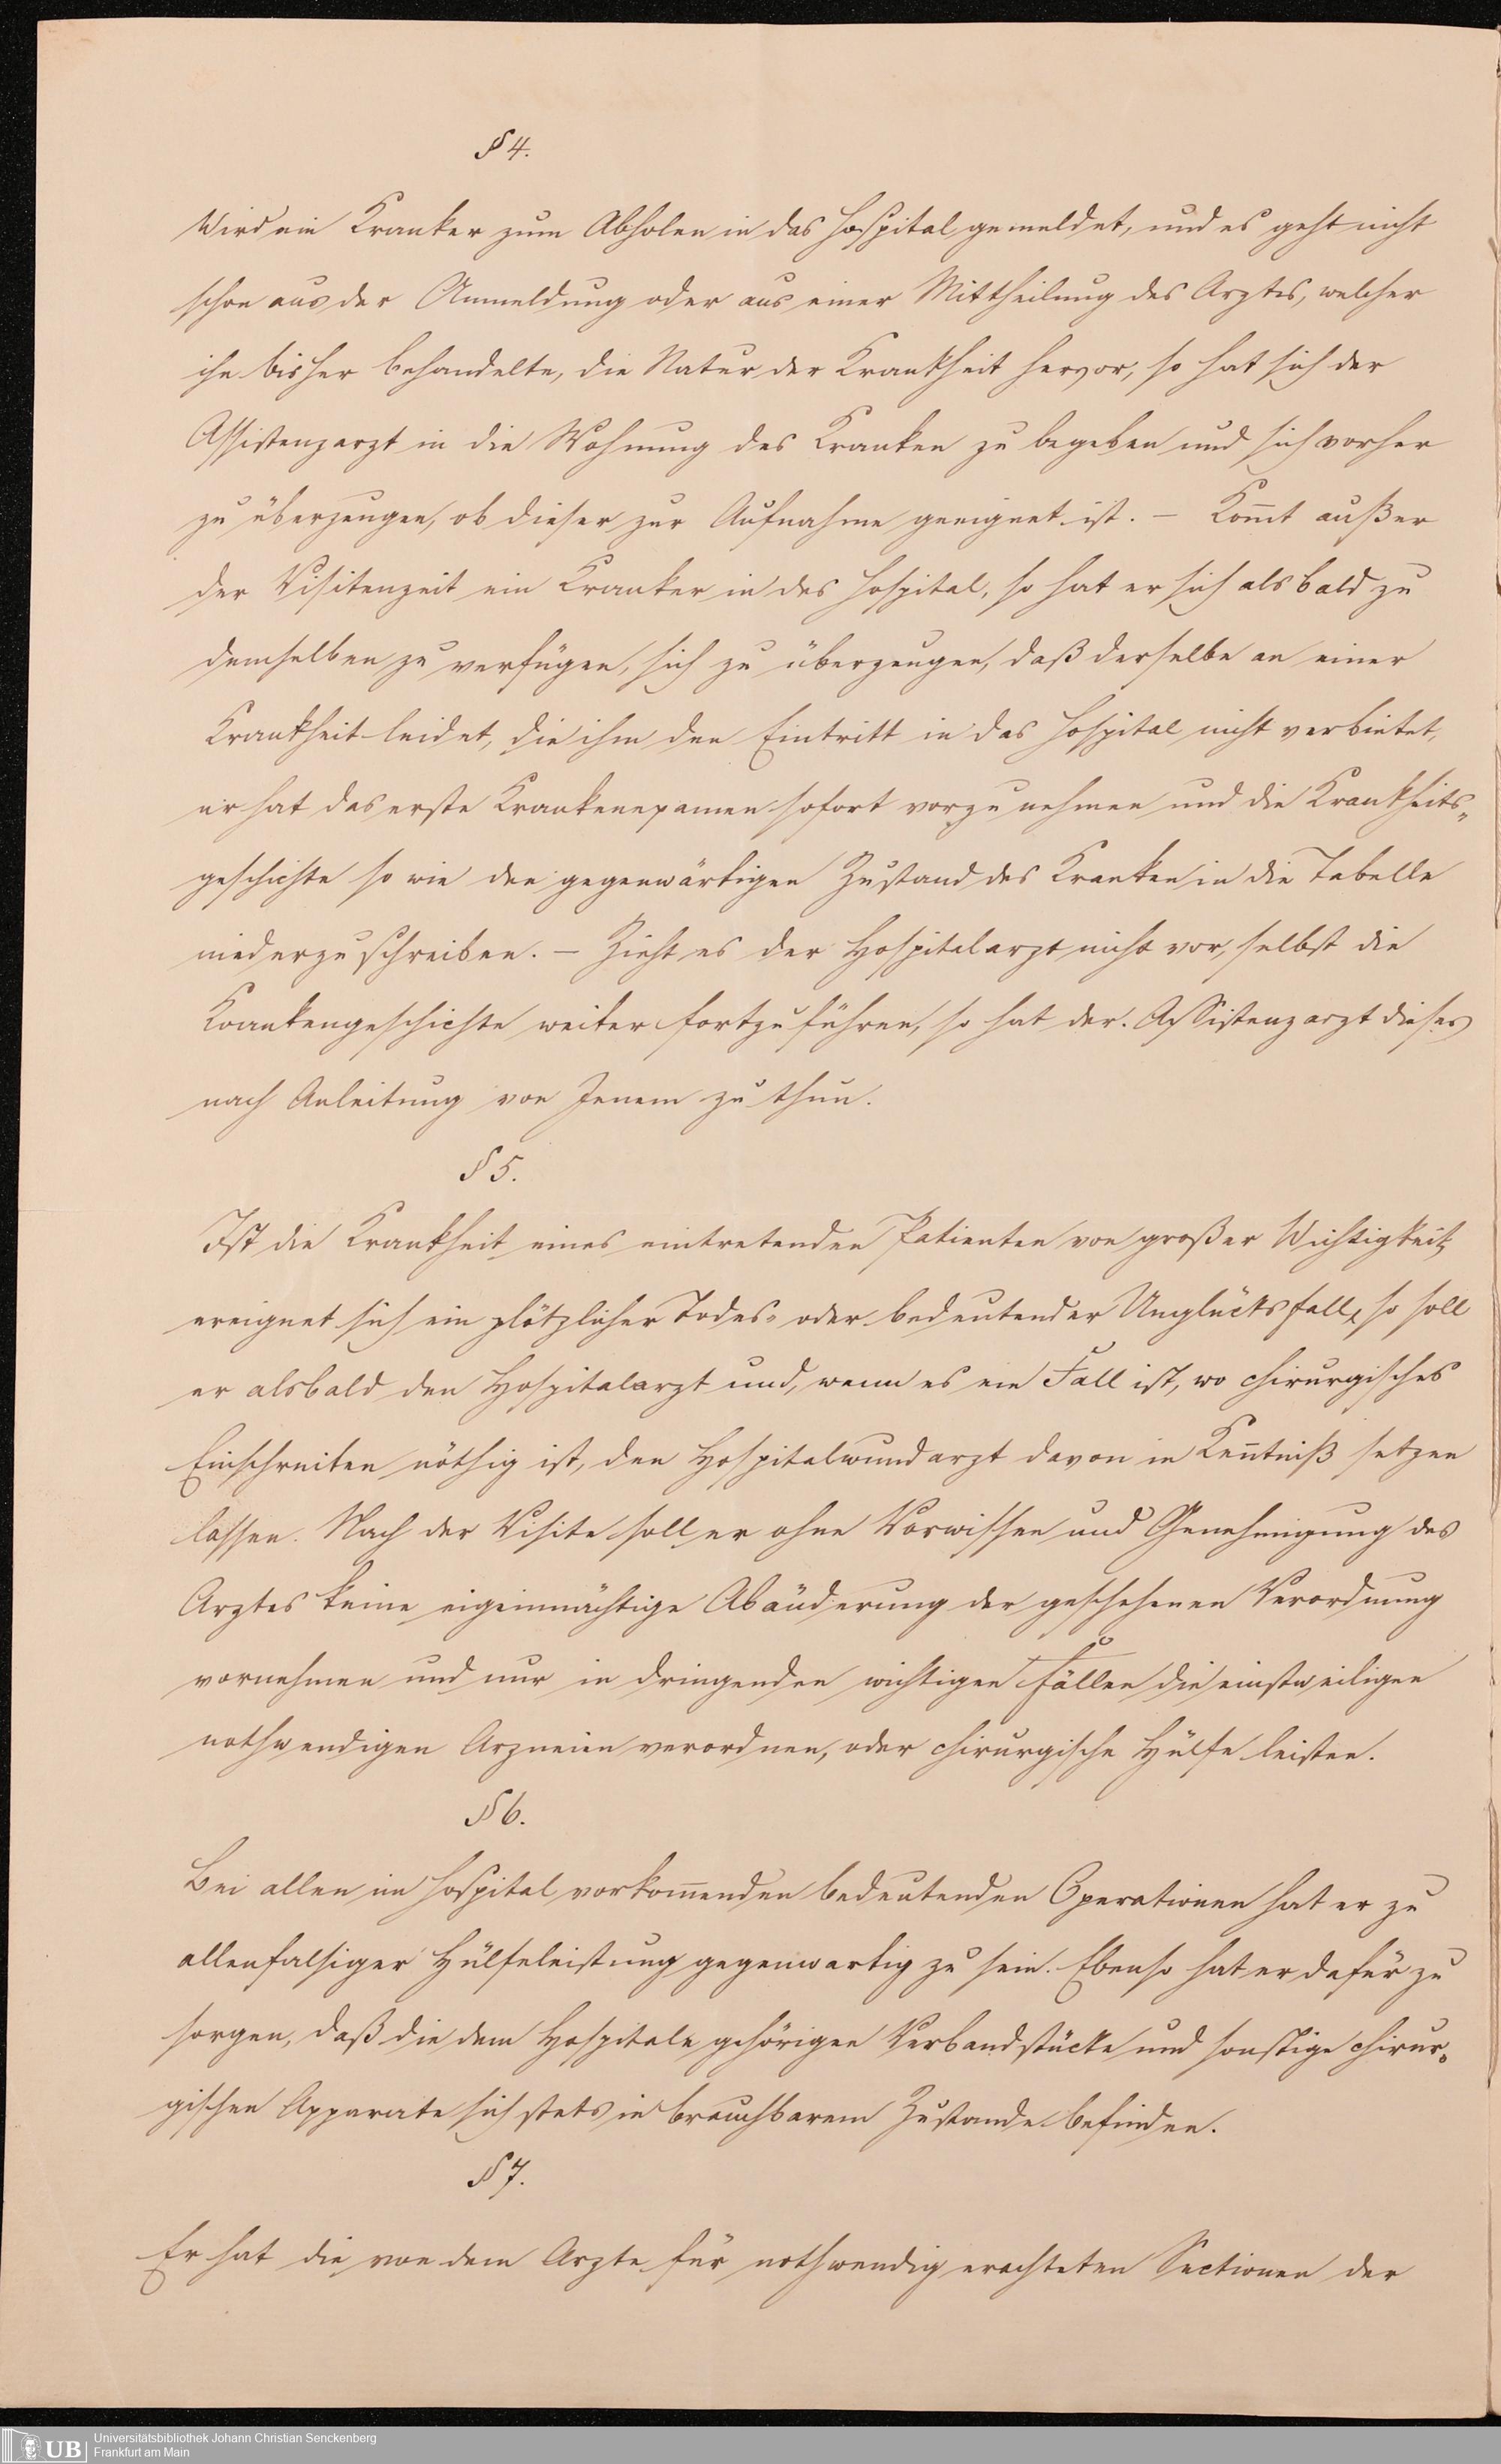 § 4.
Wird ein Kranker zum Abholen in das Hospital gemeldet, und es geht nicht
schon aus der Anmeldung oder aus einer Mittheilung des Arztes, welcher
ihn bisher behandelte, die Natur der Krankheit hervor, so hat sich der
Assistenzarzt in die Wohnung des Kranken zu begeben und sich vorher
zu überzeugen, ob dieser zur Aufnahme geeignet ist. – Kom̄t außer
der Visitenzeit ein Kranker in das Hospital, so hat er sich alsbald zu
demselben zu verfügen, sich zu überzeugen, daß derselbe an einer
Krankheit leidet, die ihm den Eintritt in das Hospital nicht verbietet,
er hat das erste Krankenexamen sofort vorzunehmen und die Krankheits„
geschichte so wie den gegenwärtigen Zustand des Kranken in die Tabelle
niederzuschreiben. – Zieht es der Hospitalarzt nicht vor, selbst die
Krankengeschichte weiter fortzuführen, so hat der Assistenzarzt dieses
nach Anleitung von Jenem zu thun.
§ 5.
Ist die Krankheit eines eintretenden Patienten von großer Wichtigkeit,
ereignet sich ein plötzlicher Todes- oder bedeutender Unglücksfall, so soll
er alsbald den Hospitalarzt und, wenn es ein Fall ist, wo chirurgisches
Einschreiten nöthig ist, den Hospitalwundarzt davon in Ken̄tniß setzen
lassen. Nach der Visite soll er ohne Vorwissen und Genehmigung des
Arztes keine eigenmächtige Abänderung der geschehenen Verordnung
vornehmen und nur in dringenden wichtigen Fällen die einstweiligen
nothwendigen Arzneien verordnen, oder chirurgische Hülfe leisten.
§ 6.
Bei allen im Hospital vorkom̄enden bedeutenden Operationen hat er zu
allenfalsiger Hülfeleistung gegenwartig zu sein. Ebenso hat er dafür zu
sorgen, daß die dem Hospitale gehörigen Verbandstücke und sonstige chirur„
gischen Apparate sich stets in brauchbarem Zustande befinden.
§ 7.
Er hat die von dem Arzte für nothwendig erachteten Sectionen der
UB
Universitätsbibliothek Johann Christian Senckenberg
Frankfurt am Main